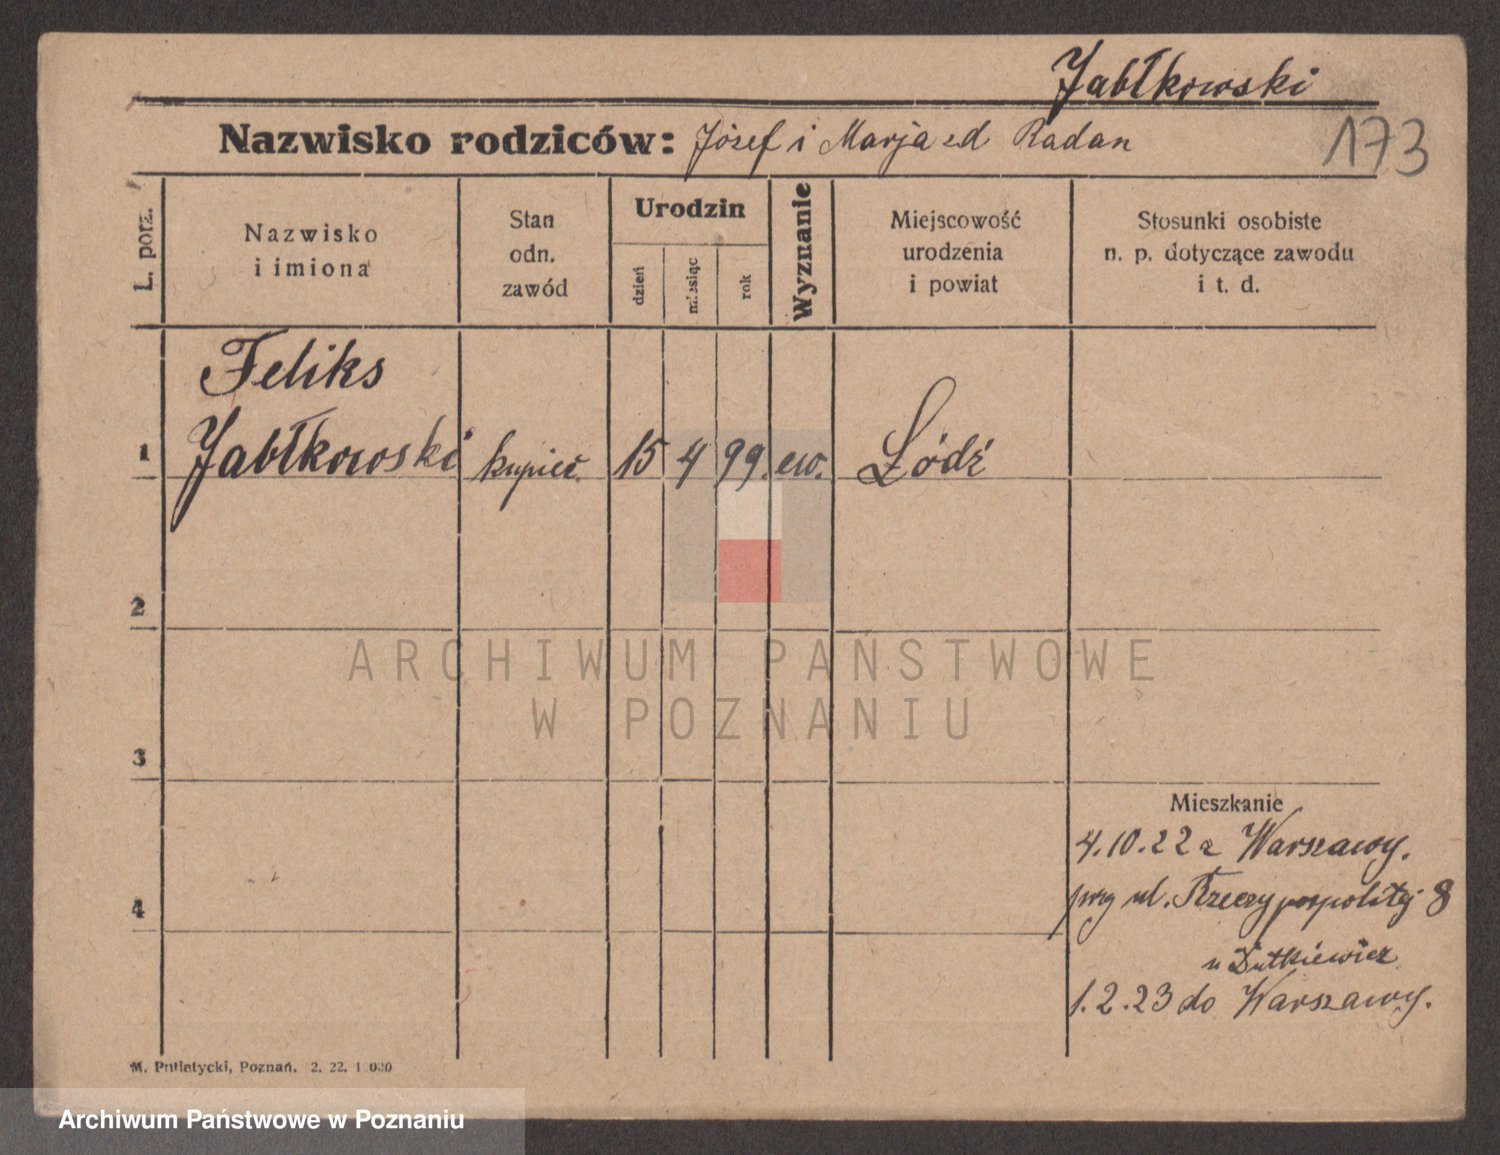 Jabłkowski
Nazwisko rodziców: Józef i Marja zd Radan
173
L. porz.
Nazwisko
i imiona
Stan
odn.
zawód
Urodzin
dzień
miesiąc
rok
Wyznanie
Miejscowość
urodzenia
i powiat
Stosunki osobiste
n. p. dotyczące zawodu
i t. d.
Feliks
1 Jabłkowski kupiec. 15 4 99. ew. Łódź
2
ARCHIWUM PAŃSTWOWE
W POZNANIU
3
Mieszkanie
4.10.22 z Warszawy.
4
przy ul. Rzeczypospolitej 8
u Dutkiewicz
1.2.23 do Warszawy.
M. Putiatycki, Poznań. 2. 22. 1 000
Archiwum Państwowe w Poznaniu